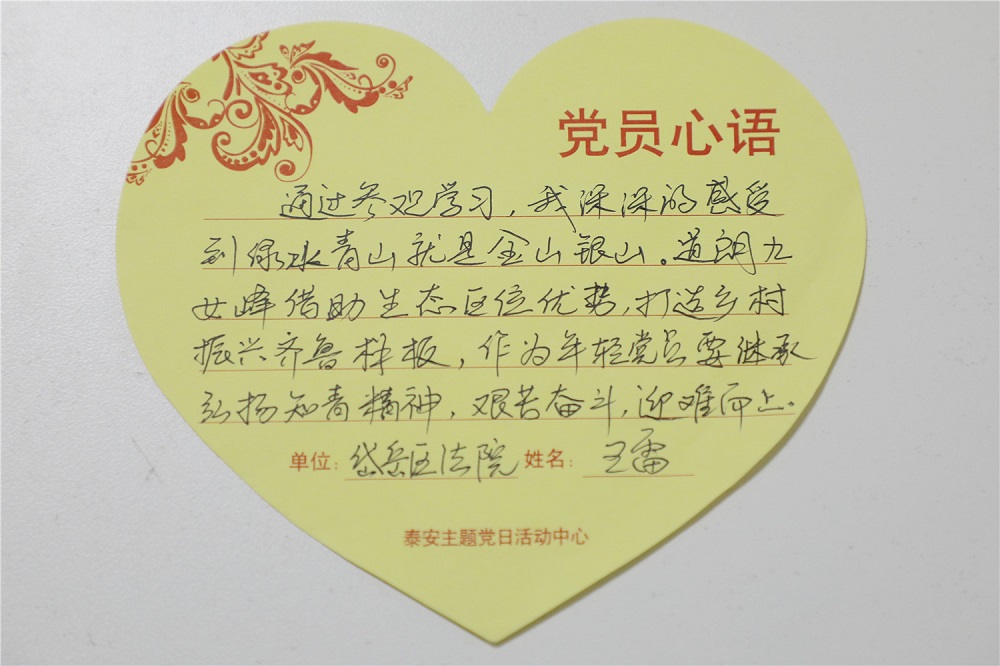 党员心语
通过参观学习，我深深的感受
到绿水青山就是金山银山。道朗九
女峰借助生态区位优势，打造乡村
振兴齐鲁样板，作为年轻党员要继承
弘扬知青精神，艰苦奋斗，迎难而上。
单位：岱岳区法院 姓名：王雷
泰安主题党日活动中心